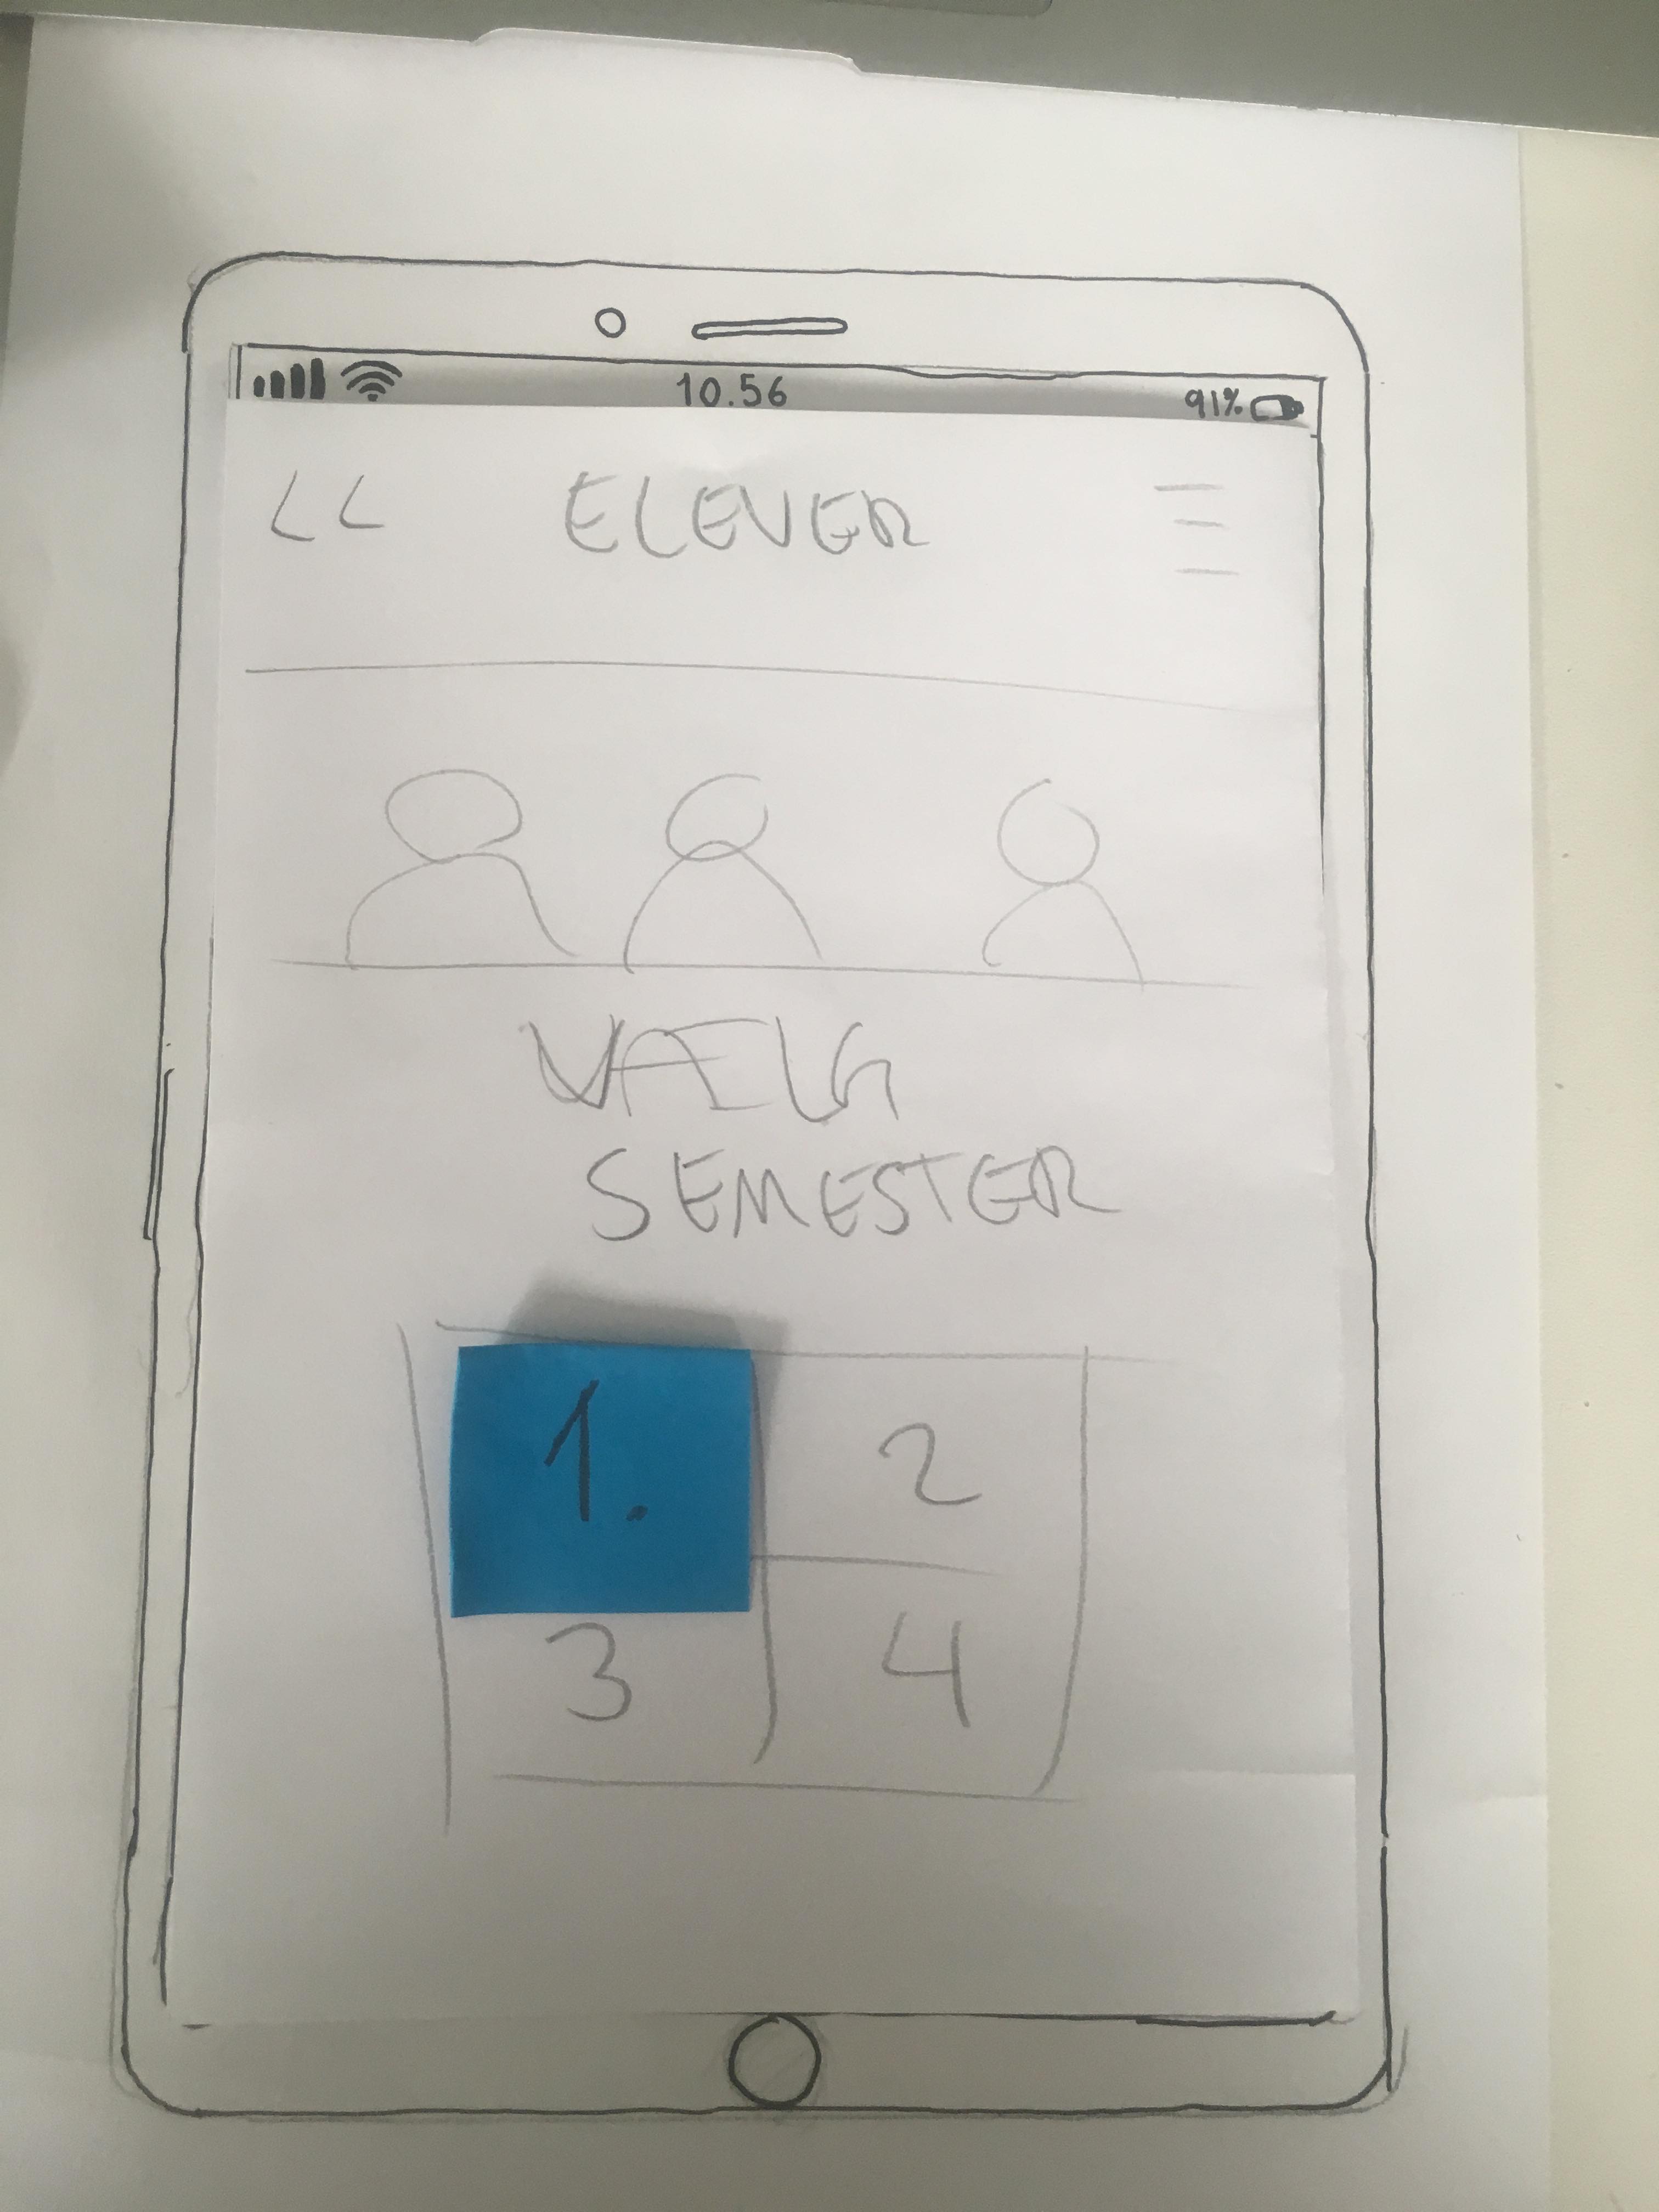 10.56 91%
<< ELEVER
VÆLG
SEMESTER
1. 2
3 4